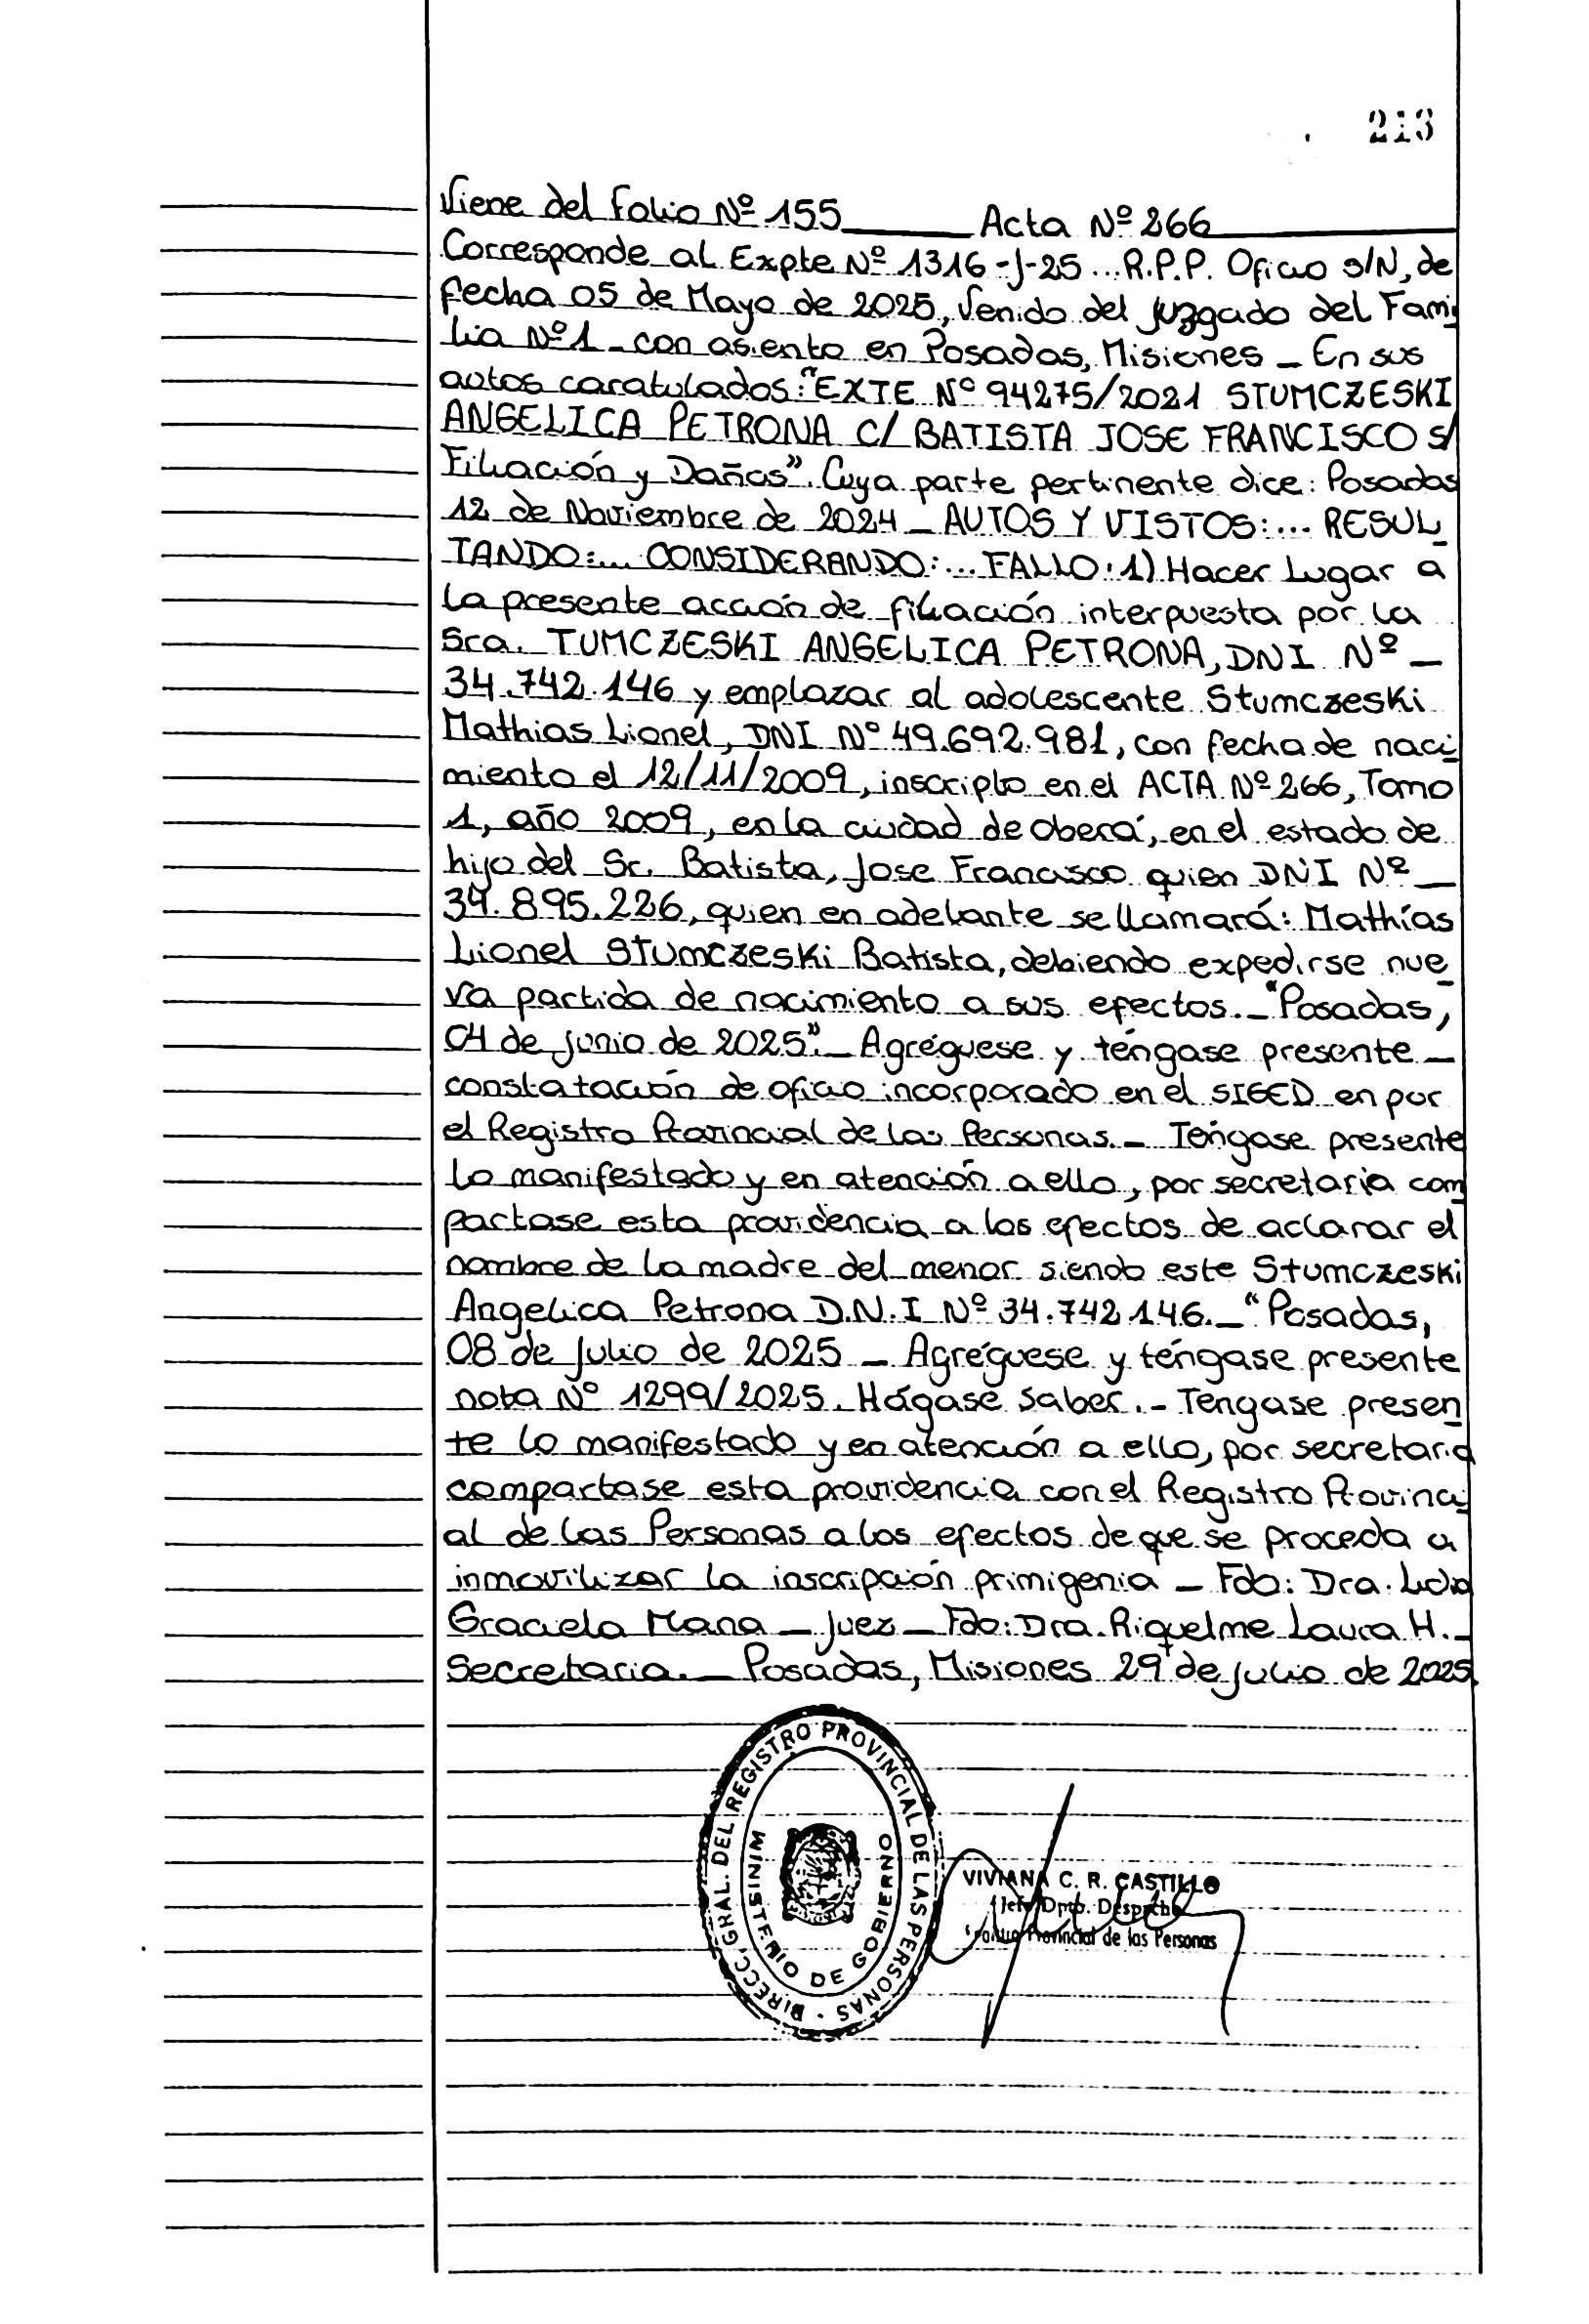 213
Viene del folio Nº 155 Acta Nº 266
Corresponde al Expte Nº 1316-J-25 ... R.P.P. Oficio s/N, de
fecha 05 de Mayo de 2025, Venido del Juzgado del Fami
lia Nº1 - con asiento en Posadas, Misiones - En sus
autos caratulados: "EXTE Nº 94275/2021 STUMCZESKI
ANGELICA PETRONA C/ BATISTA JOSE FRANCISCO s/
Filiación y Daños". Cuya parte pertinente dice: Posadas
12 de Noviembre de 2024 - AUTOS Y VISTOS:... RESUL
TANDO:... CONSIDERANDO:... FALLO: 1) Hacer Lugar a
la presente acción de filiación interpuesta por la
Sra. TUMCZESKI ANGELICA PETRONA, DNI Nº -
34.742.146 y emplazar al adolescente Stumczeski
Mathias Lionel, DNI Nº 49.692.981, con fecha de naci
miento el 12/11/2009, inscripto en el ACTA Nº 266, Tomo
1, año 2009, en la ciudad de Oberá, en el estado de
hijo del Sr. Batista, Jose Francisco quien DNI Nº -
34.895.226, quien en adelante se llamará: Mathías
Lionel Stumczeski Batista, debiendo expedirse nue
va partida de nacimiento a sus efectos. - "Posadas,
04 de Junio de 2025". - Agréguese y téngase presente -
constatación de oficio incorporado en el SIGED en por
el Registro Provincial de las Personas. - Téngase presente
lo manifestado y en atención a ello, por secretaría com
partase esta providencia a los efectos de aclarar el
nombre de la madre del menor siendo este Stumczeski
Angelica Petrona D.N.I Nº 34.742.146. - "Posadas,
08 de Julio de 2025 - Agréguese y téngase presente
nota Nº 1299/2025. Hágase Saber. - Tengase presen
te lo manifestado y en atención a ello, por secretaria
compartase esta providencia con el Registro Provinci
al de las Personas a los efectos de que se proceda a
inmovilizar la inscripción primigenia - Fdo: Dra. Lidia
Graciela Mana - Juez - Fdo: Dra. Riquelme Laura H. -
Secretaria. - Posadas, Misiones 29 de Julio de 2025.
DIRECC. GRAL. DEL REGISTRO PROVINCIAL DE LAS PERSONAS
MINISTERIO DE GOBIERNO
VIVIANA C. R. CASTILLO
Jefe Dpto. Despacho
Provincial de las Personas